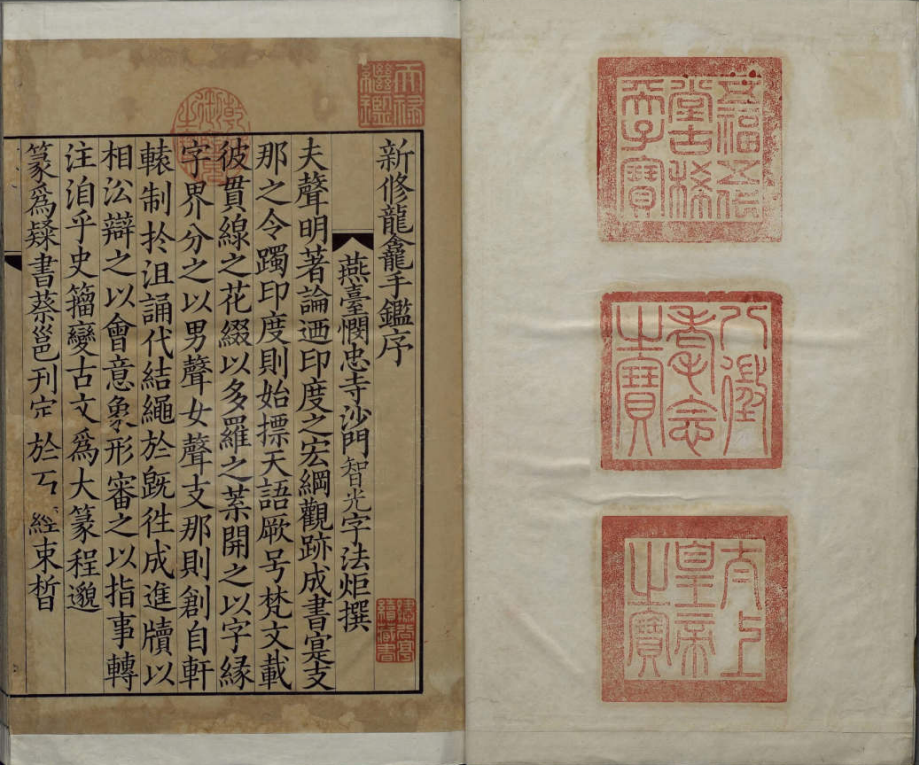 五福五代
堂古稀
天子寶
八徵
耄念
之寶
太上
皇帝
之寶
天祿
繼鑑
乾隆御覽之寶
新修龍龕手鑑序
燕臺憫忠寺沙門智光字法炬撰
夫聲明著論迺印度之宏綱觀跡成書寔支
那之令躅印度則始摽天語厥号梵文載
彼貫線之花綴以多羅之葉開之以字緣
字界分之以男聲女聲支那則創自軒
轅制扵沮誦代結繩於旣徃成進牘以
相㳂辯之以會意象形審之以指事轉
注洎乎史籀變古文爲大篆程邈
篆爲隸書蔡邕刊定於石經束晳